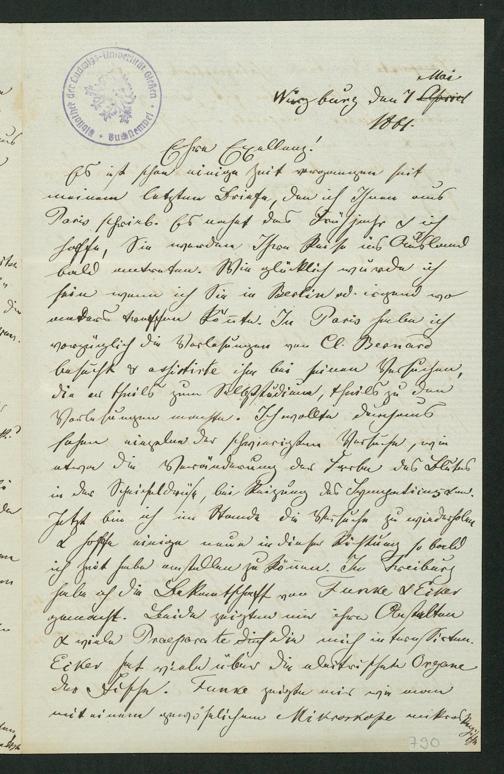 Bibliothek der Ludwigs-Universität Gießen
Buchstempel
Mai
Würzburg den 7 April
1861.
Ehre Exellenz!
Es ist schon einige Zeit vergangen seit
meinem letzten Briefe, den ich Ihnen aus
Paris schrieb. Es nahet das Frühjahr & ich
hoffe, Sie werden Ihre Reise ins Ausland
bald antreten. Wie glücklich würde ich
sein wenn ich Sie in Berlin od. irgend wo
anders treffen könte. In Paris habe ich
vorzüglich die Vorlesungen von Cl. Bernard
besucht & assistirte ihm bei seinen Versuchen,
die er theils zum Selbststudium, theils zu den
Vorlesungen machte. Ich wollte durchaus
sehen einzelne der schwierigsten Versuche, wie
etwa die Veränderung der Farbe des Blutes
in der Speicheldrüse, bei Reizung des Sympathicus
Jetzt bin ich im Stande die Versuche zu wiederholen
& hoffe einige neue in dieser Richtung so bald
ich Zeit habe anstellen zu können. In Freiburg
habe ich die Bekantschaft von Funke & Ecker
gemacht. Beide zeigten mir ihre Anstalten
& viele Praeparate die mich interessirten.
Ecker hat viele über die electrischen Organe
der Fische. Funke zeigte mir wie man
mit einem gewöhnlichen Mikroskope
790